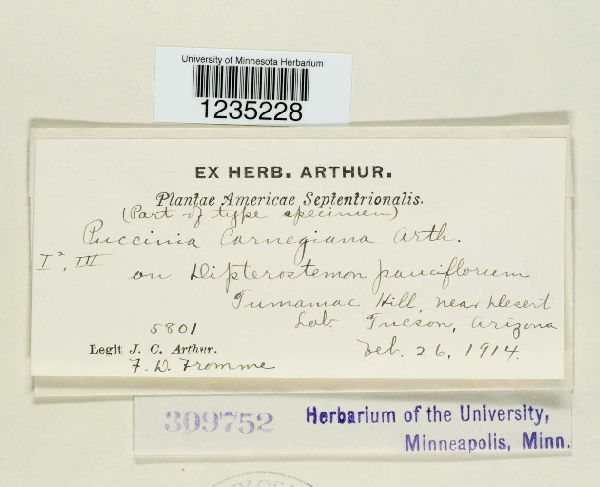 University of Minnesota Herbarium
1235228
EX HERB. ARTHUR.
Plantae Americae Septentrionalis.
(Part of type specimen)
Puccinia Carnegiana Arth.
I², III
on Dipterostemon pauciflorum
Tumamac Hill, near Desert
Lab. Tucson, Arizona
5801
Legit J. C. Arthur. Feb. 26, 1914.
F. D. Fromme
309752 Herbarium of the University,
Minneapolis, Minn.